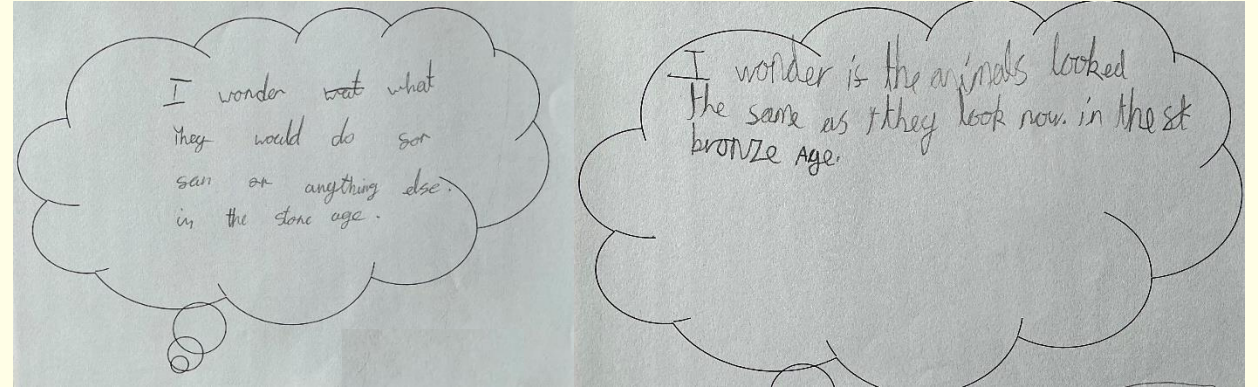 I wonder wat what
they would do sor
san or anything else.
in the stone age.
I wonder is the animals looked
the same as they look now. in the st
bronze Age.